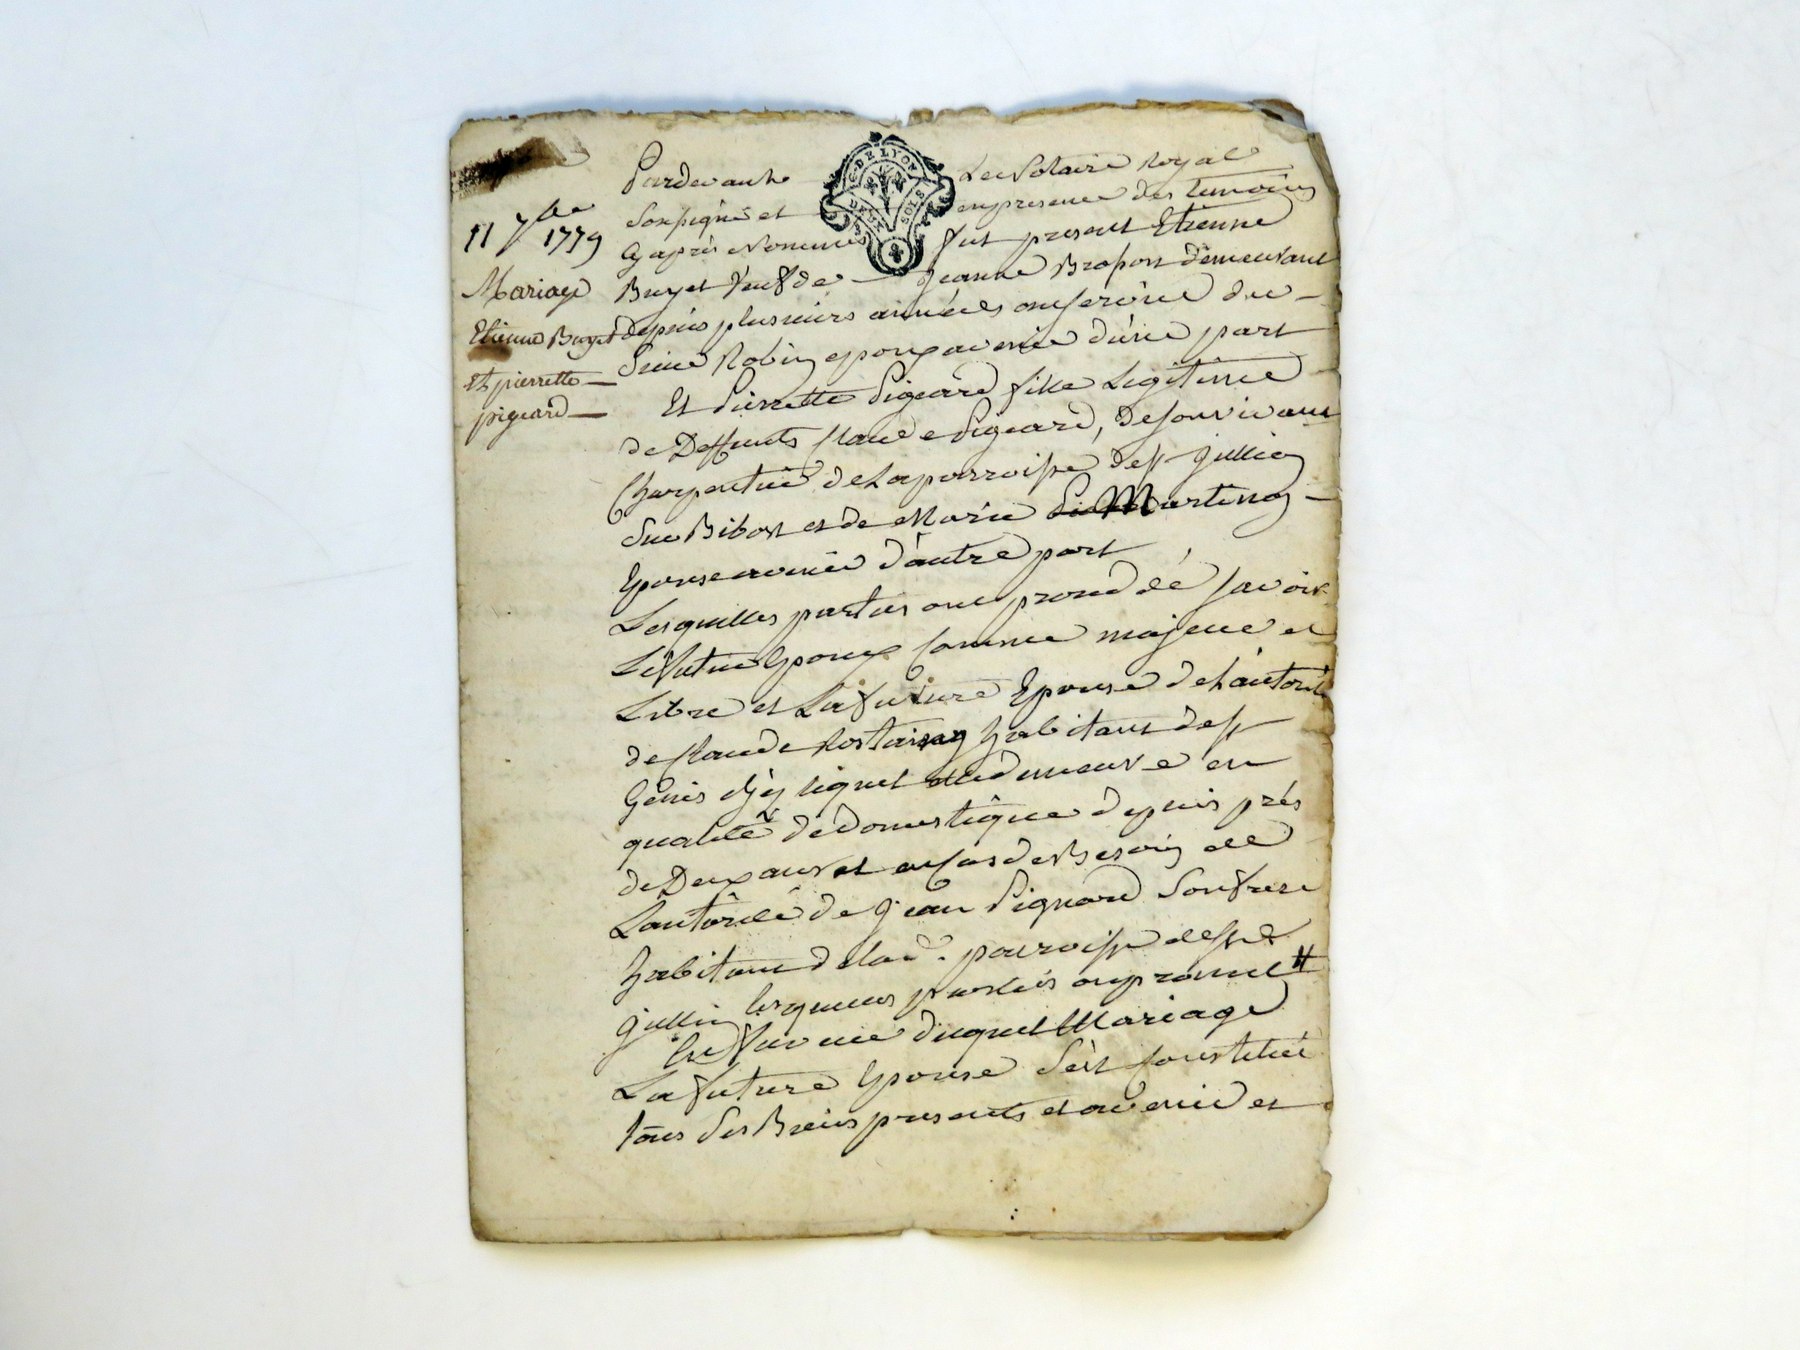 G. DE LYON
DEUX SOLS
11 7bre 1779
Mariage
Etienne Buyet
Et pierrette
pigeard
Pardevant Le Notaire Royal
Soussigné et en presence des temoins
Cy après Nommés fut present Etienne
Buyet Veuf de Jeanne demeurant
depuis plusieurs années au service du
Sieur Robin epoux avenir d'une part
Et Pierrette Pigeard fille Legitime
de Deffunts Claude Pigeard, De son vivant
Charpentier de La parroisse de st Jullien
Sur Bibost et de Marie Martinon
Epouse avenir d'autre part
Lesquelles parties ont procedé savoir
Le futur Epoux comme majeur et
Libre et La future Epouse de L'autorité
de Claude habitant de st
Genis lequel elle demeure en
qualité de domestique depuis près
de Deux ans et au Cas de Besoin de
L'autorité de Jean Pignard Son frere
habitant de lad. parroisse de st
Jullien lesquelles parties ont promis #
En faveur duquel Mariage
La future Epouse s'est constitué
tous Ses Biens presents et avenir et